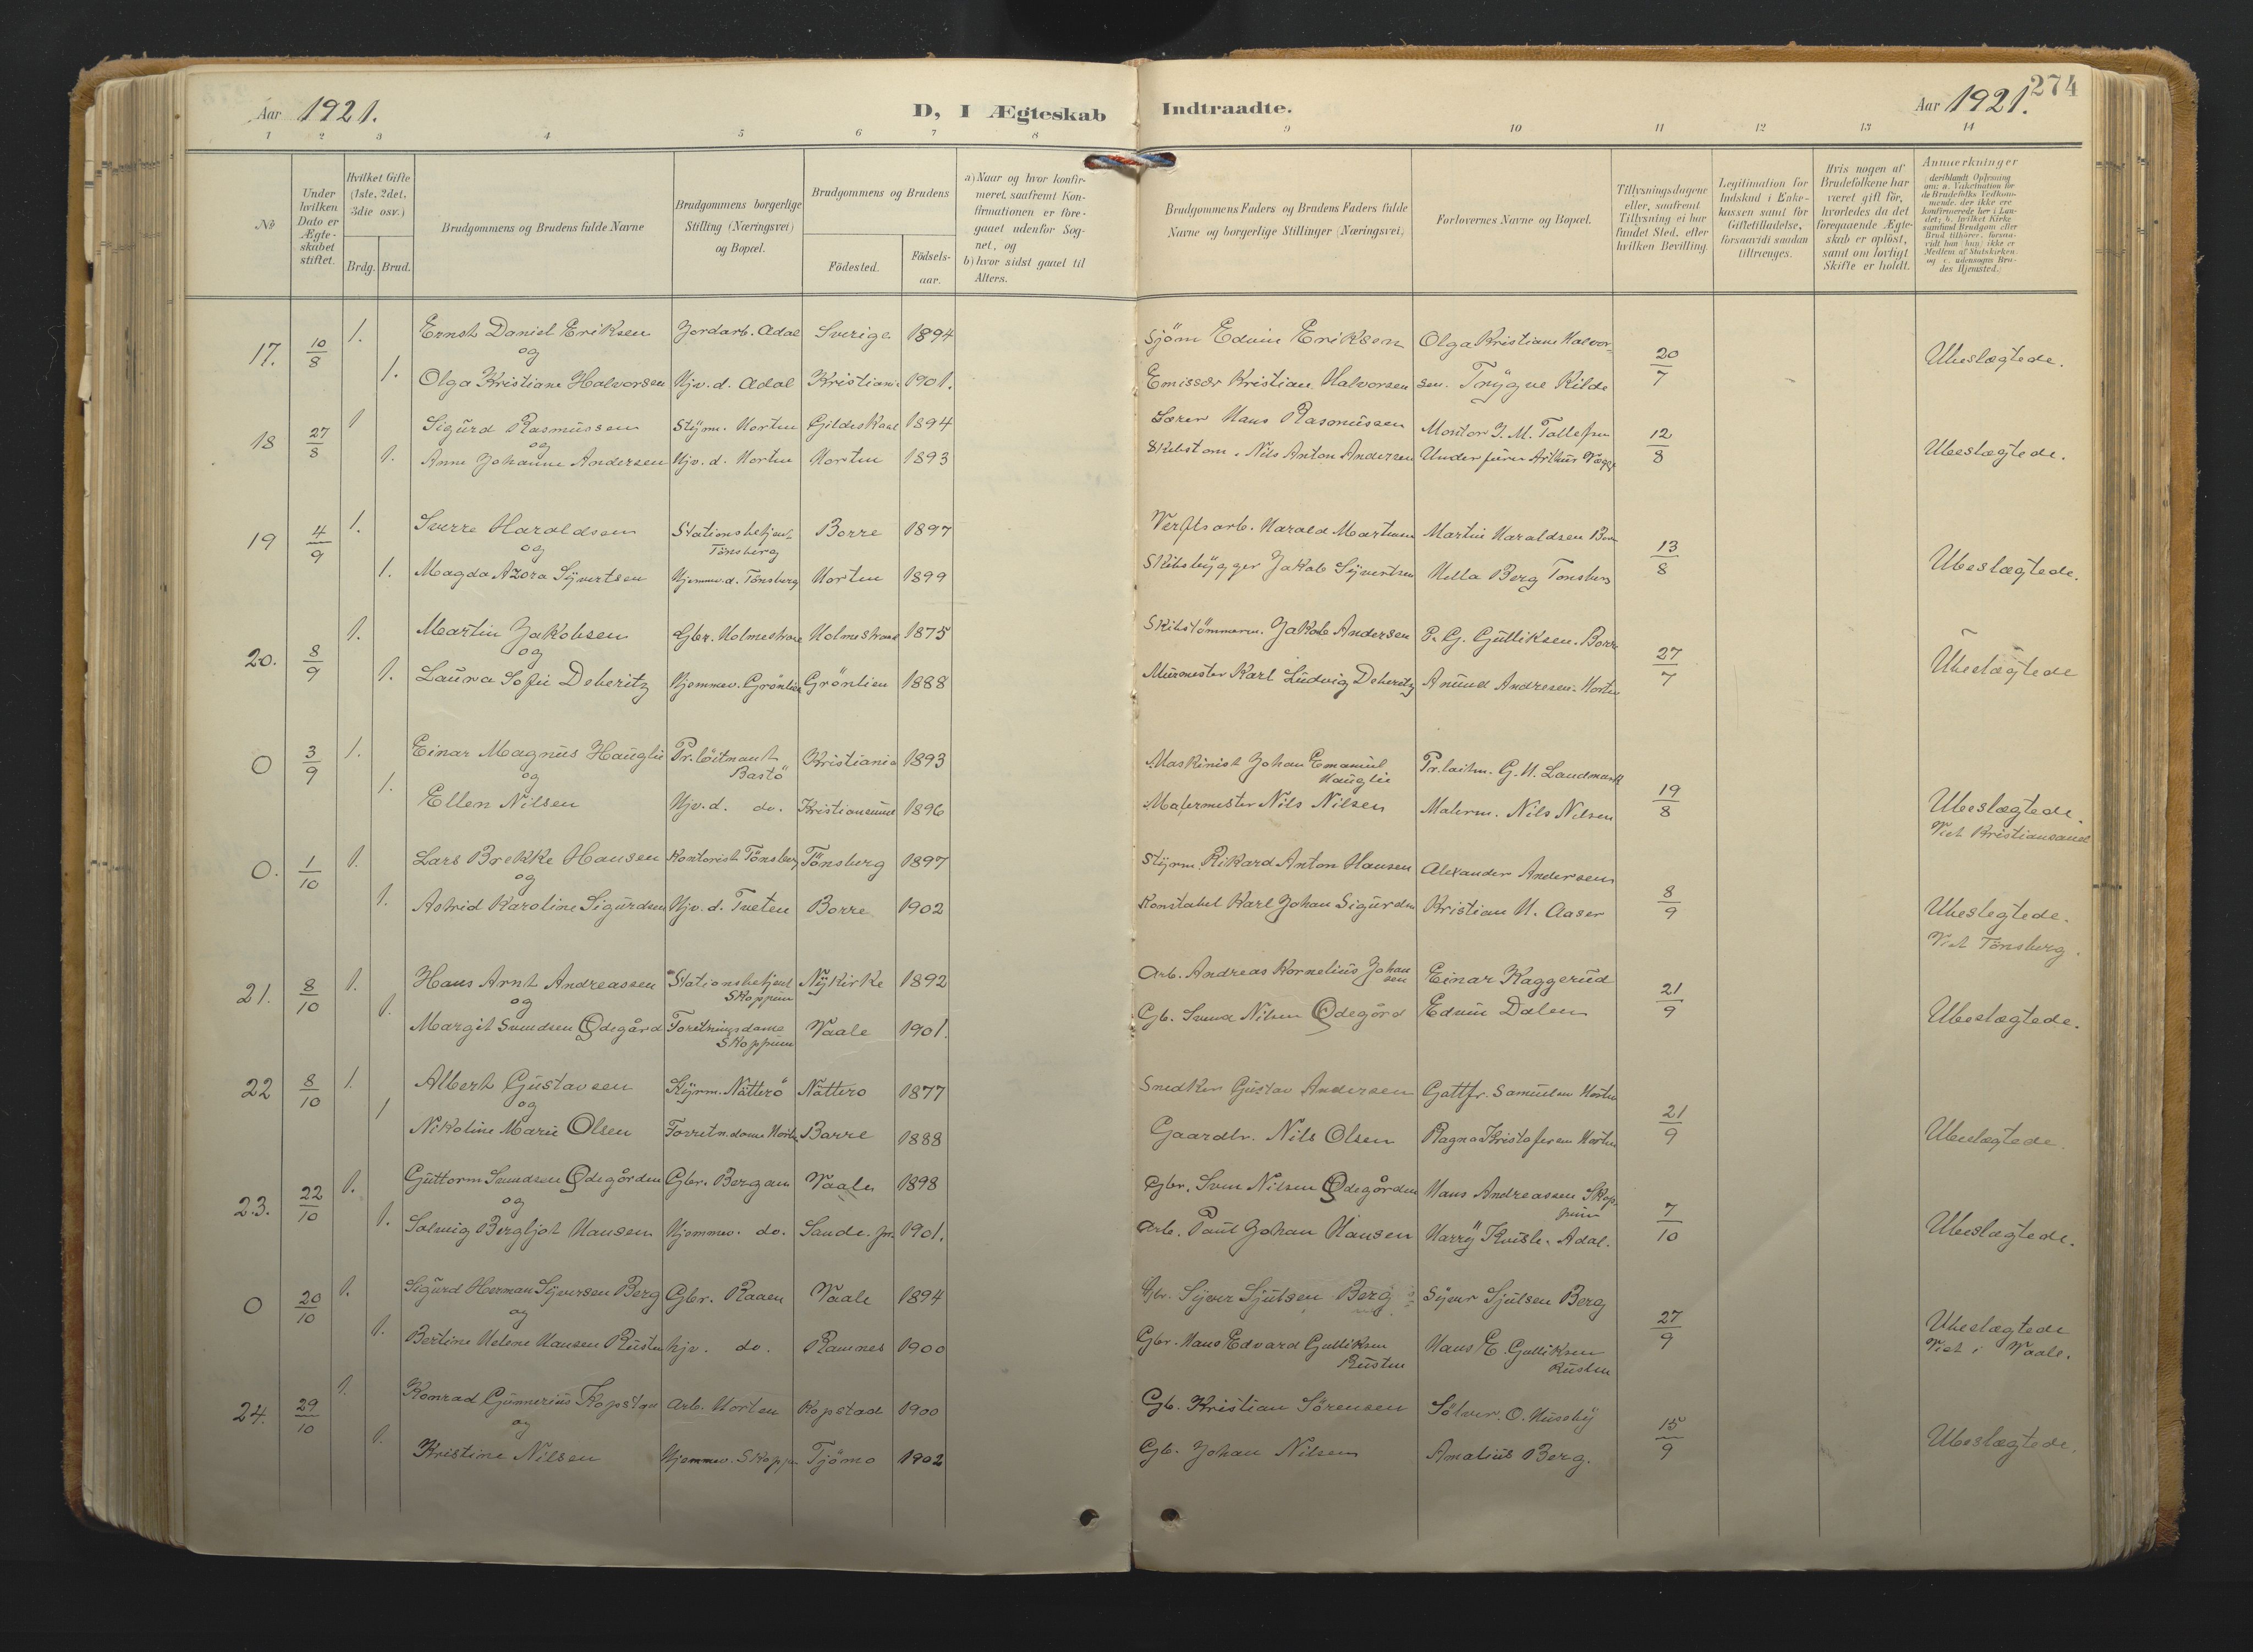 Aar 1921.
D, I Ægteskab Indtraadte.
Aar 1921.
274
1 2 3 4 5 6 7 8 9 10 11 12 13 14
№
Under hvilken Dato er Ægteskabet stiftet.
Hvilket Gifte (1ste, 2det, 3die osv.)
Brdg. Brud.
Brudgommens og Brudens fulde Navne
Brudgommens borgerlige Stilling (Næringsvei) og Bopæl.
Brudgommens og Brudens
Fødested.
Fødselsaar.
a) Naar og hvor konfirmeret, saafremt Konfirmationen er foregaaet udenfor Sognet, og
b) hvor sidst gaaet til Alters.
Brudgommens Faders og Brudens Faders fulde Navne og borgerlige Stillinger (Næringsvei)
Forlovernes Navne og Bopæl.
Tillysningsdagene eller, saafremt Tillysning ei har fundet Sted, efter hvilken Bevilling.
Legitimation for Indskud i Enkekassen samt for Giftetilladelse, forsaavidt saadan tiltrænges.
Hvis nogen af Brudefolkene har været gift før, hvorledes da det foregaaende Ægteskab er opløst, samt om lovligt Skifte er holdt.
Anmerkninger
(deriblandt Oplysning om: a. Vakcination for de Brudefolks Vedkommende, der ikke ere konfirmerede her i Landet; b. hvilket Kirkesamfund Brudgom eller Brud tilhører, forsaavidt han (hun) ikke er Medlem af Statskirken, og c. udensogns Brudes Hjemsted.)
17. 10/8 1. Ernst Daniel Eriksen Jordarb. Adal Sverige 1894 Sjöm Edvin Eriksen Olga Kristiane Halvor-
og 20/7 Ubeslægtede.
1. Olga Kristiane Halvorsen Hjv. d. Adal Kristiania 1901. Emissær Kristian Halvorsen sen. Trygve Kilde
18 27/8 1 Sigurd Rasmussen Styrm. Horten Gildeskaal 1894 Lærer Hans Rasmussen Montor J. M. Tollefsen
og 12/8 Ubeslægtede.
1. Anne Johanne Andersen Hjv. d. Horten Horten 1893 Nils Anton Andersen Arthur
19 4/9 1. Sverre Haraldsen Stationsbetjent Tönsberg Borre 1897 Verftsarb. Harald Martinsen Martin Haraldsen
og 13/8 Ubeslægtede.
1. Magda Azora Syvertsen Hjemmev. d. Tönsberg Horten 1899 Skibsbygger Jakob Syvertsen Hella Berg Tonsberg
20. 8/9 1. Martin Jakobsen Gbr. Holmestrand Holmestrand 1875 Skibstömmerm. Jakob Andersen P. G. Gulliksen. Borre
og 27/7 Ubeslægtede
1. Laura Sofie Deberitz Hjemmev. Grönlien Grönlien 1888 Murmester Karl Ludvig Deberitz Anund Andresen. Horten
0 3/9 1. Einar Magnus Hauglie Pr. löitnant Bastö Kristiania 1893 Maskinist Johan Emanuel Hauglie Pr. laitn. G. H. Landmark
og 19/8 Ubeslægtede.
1. Ellen Nilsen Hjv. d. do. Kristiansund 1896 Malermester Nils Nilsen Malerm. Nils Nilsen
Viet Kristiansand
0. 1/10 1. Lars Brekke Hansen Kontorist Tönsberg Tönsberg 1897 Styrm. Rikard Anton Hansen Alexander Andersen
og 8/9 Ubeslegtede.
1. Astrid Karoline Sigurdsen Hjv. d. Tveten Borre 1902 Konstabel Karl Johan Sigurdsen Kristian H. Aaser
Viet Tönsberg.
21. 8/10 1. Hans Arnt Andreassen Stationsbetjent Skoppum Nykirke 1892 Arb. Andreas Kornelius Johansen Einar Kaggerud
og 21/9 Ubeslægtede.
1. Margit Svendsen Ødegård Foretningsdame Skoppum Vaale 1901. Gb. Svend Nilsen Ødegård Edvin Dalen
22 8/10 1. Albert Gustavsen Styrm. Nötterö Nötterö 1877 Snedker Gustav Andersen Gottfr. Samuelsen Horten
og 21/9 Ubeslægtede.
1 Nikoline Marie Olsen Forretn. dame Horten Borre 1888 Gaardbr. Nils Olsen Ragna Kristofersen Horten
23. 22/10 1. Guttorm Svendsen Ødegården Gbr. Bergan Vaale 1898 Gbr. Sven Nilsen Ødegården Hans Andreassen Skoppum
og 7/10 Ubeslægtede.
1. Solveig Bergljot Hansen Hjemmev. do. Sande. pr. 1901. Arb. Paul Johan Hansen Harry Kvisle. Adal.
0 20/10 1. Sigurd Herman Syversen Berg Gbr. Raaen Vaale 1894 Gbr. Syver Sjulsen Berg Syver Sjulsen Berg
og 27/9 Ubeslægtede
1. Bertine Helene Hansen Rusten hjv. do. Ramnes 1900 Gbr. Hans Edvard Gulliksen Rusten Hans E. Gulliksen Rusten
Viet i Vaale.
24. 29/10 1. Konrad Gunnerius Kopstad Arb. Horten Kopstad 1900 Gb. Kristian Sörensen Sölver. O. Huseby
og 15/9 Ubeslægtede.
1. Kristine Nilsen Hjemmev. Skoppum Tjömo 1902 Gb. Johan Nilsen Amalius Berg.